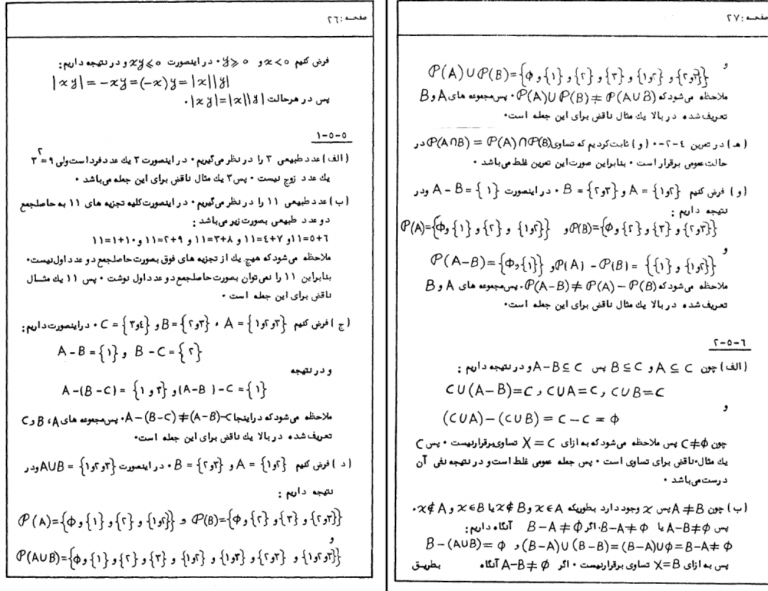 صفحه :۲۶
فرض کنیم x<0 و y⩾0 . در اینصورت xy⩽0 و در نتیجه داریم:
|xy| = -xy = (-x)y = |x||y|
پس در هر حالت |xy|=|x||y| .
۱-۵-۵
(الف) عدد طبیعی ۳ را در نظر می‌گیریم . در اینصورت ۳ یك عدد فرد است ولی ۹ = ۳^۲
یك عدد زوج نیست . پس ۳ یك مثال ناقض برای این جمله می‌باشد .
(ب) عدد طبیعی ۱۱ را در نظر می‌گیریم . در اینصورت کلیه تجزیه های ۱۱ به حاصلجمع
دو عدد طبیعی بصورت زیر می‌باشد :
۱۱=۱۰+۱ و ۱۱=۲+۹ و ۱۱=۳+۸ و ۱۱=۴+۷ و ۱۱=۵+۶
ملاحظه می‌شود که هیچ یك از تجزیه های فوق بصورت حاصلجمع دو عدد اول نیست .
بنابراین ۱۱ را نمی‌توان بصورت حاصلجمع دو عدد اول نوشت . پس ۱۱ یك مثـال
ناقض برای این جمله است .
(ج) فرض کنیم A = {۱ و۲ و۳} ، B = {۲ و۳} و C = {۳ و۴} . در اینصورت داریم :
A-B = {۱} و B-C = {۲}
و در نتیجه
A-(B-C) = {۱ و ۳} و (A-B)-C = {۱}
ملاحظه می‌شود که در اینجا A-(B-C) ≠ (A-B)-C . پس مجموعه های A ، B و C
تعریف شده در بالا یك ناقض برای این جمله است .
(د) فرض کنیم A = {۱ و۲} و B = {۲ و۳} . در اینصورت A∪B = {۱ و۲ و۳} و در
نتیجه داریم :
P(A)={Φ و {۱} و {۲} و {۱ و۲}} و P(B)={Φ و {۲} و {۳} و {۲ و۳}}
و
P(A∪B)={Φ و {۱} و {۲} و {۳} و {۱ و۲} و {۱ و۳} و {۲ و۳} و {۱ و۲ و۳}}
صفحه :۲۷
و
P(A)∪P(B)={Φ و {۱} و {۲} و {۳} و {۱ و۲} و {۲ و۳}}
ملاحظه می‌شود که P(A)∪P(B) ≠ P(A∪B) . پس مجموعه های A و B
تعریف شده در بالا یك مثال ناقض برای این جمله است .
(هـ) در تمرین ۴-۲-۰ (و) ثابت کردیم که تساوی P(A∩B) = P(A)∩P(B) در
حالت عمومی برقرار است . بنابراین صورت این تمرین غلط می‌باشد .
(و) فرض کنیم A = {۱ و۲} و B = {۲ و۳} . در اینصورت A-B = {۱} و در
نتیجه داریم :
P(A)={Φ و {۱} و {۲} و {۱ و۲}} و P(B)={Φ و {۲} و {۳} و {۲ و۳}}
و
P(A-B)={Φ و {۱}} و P(A) - P(B) = {{۱} و {۱ و۲}}
ملاحظه می‌شود که P(A-B) ≠ P(A) - P(B) . پس مجموعه های A و B
تعریف شده در بالا یك مثال ناقض برای این جمله است .
۲-۵-۶
(الف) چون A⊆C و B⊆C پس A-B⊆C و در نتیجه داریم :
C∪(A-B)=C ، C∪A=C ، C∪B=C
و
(C∪A)-(C∪B) = C-C = Φ
چون C≠Φ پس ملاحظه می‌شود که به ازای X=C تساوی برقرار نیست . پس C
یك مثال ناقض برای تساوی است . پس جمله عمومی غلط است و در نتیجه نفی آن
درست می‌باشد .
(ب) چون A≠B پس x وجود دارد بطوریکه x∈A و x∉B یا x∈B و x∉A .
پس A-B≠Φ یا B-A≠Φ . اگر B-A≠Φ آنگاه داریم :
B-(A∪B)=Φ و (B-A)∪(B-B)=(B-A)∪Φ=B-A≠Φ
پس به ازای X=B تساوی برقرار نیست . اگر A-B≠Φ آنگاه بطریـق